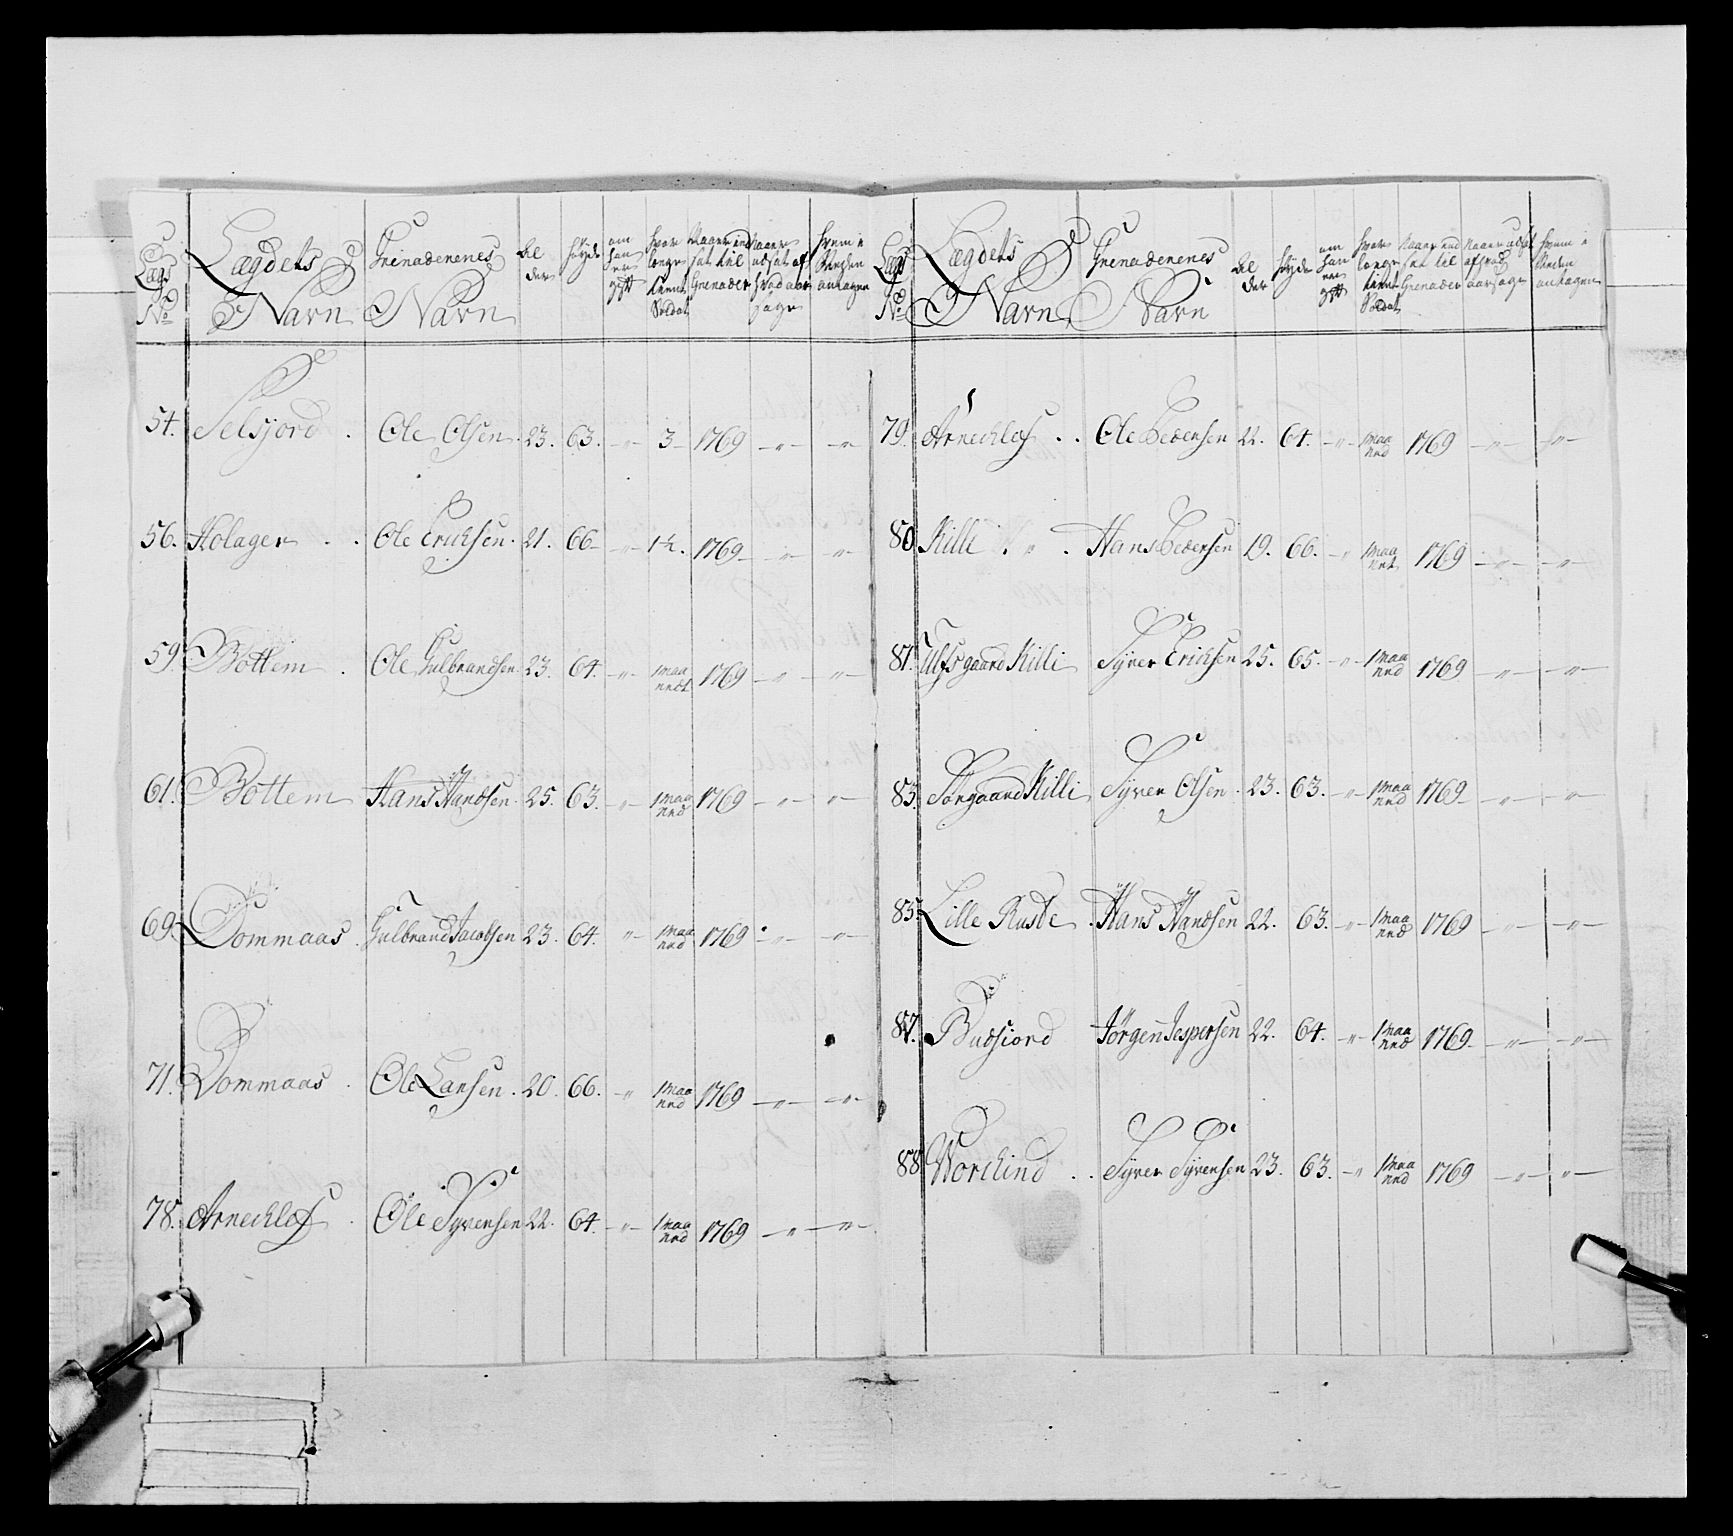 Lægs No | Lægdets Navn | Grenaderenes Navn | Al der | höyde | om han er gift | hvor længe tient Soldat | Naar ind sat til Grenader | Naar udsat af hvad aar sage | hvem i Steden antagen
54. | Selsjord . | Ole Olsen . | 23. | 63. | -"- | 3 | 1769 | -"- | -"-
56. | Holager . . | Ole Ericksen . | 21. | 66 | -"- | 1½. | 1769 | -"- | -"-
59 | Bottem . | Ole Gulbrandsen | 23. | 64. | -"- | 1 maa nedt | 1769 | -"- | -"-
61. | Bottem | Hans Handsen . | 25. | 63. | -"- | 1 maa ned | 1769 | -"- | -"-
69. | Dommaas . | Gulbrand Jacobsen | 23. | 64. | -"- | 1 maa ned | 1769 | -"- | -"-
71. | Dommaas . | Ole Larsen . | 20. | 66. | -"- | 1 maa ned | 1769 | -"- | -"-
78. | Arnecklef . | Ole Syversen | 22. | 64. | -"- | 1 maa ned | 1769 | -"- | -"-
Lægs No | Lægdets Navn | Grenaderenes Navn | Al der | höyde | om han er gift | hvor længe tient Soldat | Naar ind sat til Grenader | Naar udsat af hvad aarsage | hvem i Steden antagen
79. | Arnecklef . . | Ole Pedersen | 22. | 64. | -"- | 1 maa ned | 1769 | -"- | -"-
80 | Killi . " . | Hans Pedersen | 19. | 66. | -"- | 1 maa net | 1769 | -"- | -"-
81. | Ulfsgaard Killi | Syver Ericksen | 25. | 65. | -"- | 1 maa ned | 1769 | -"- | -"-
83. | Sørgaard Killi | Syver Olsen . | 23. | 63. | -"- | 1 maa ned | 1769 | -"- | -"-
85. | Lille Ruste . | Hans Handsen | 22. | 63. | -"- | 1 maa ned | 1769 | -"- | -"-
87. | Budsiord | Jörgen Jespersen | 22. | 64. | -"- | 1 maa ned | 1769 | -"- | -"-
88 | Worckind . . | Syver Syversen | 23. | 63. | -"- | 1 maa ned | 1769 | -"- | -"-